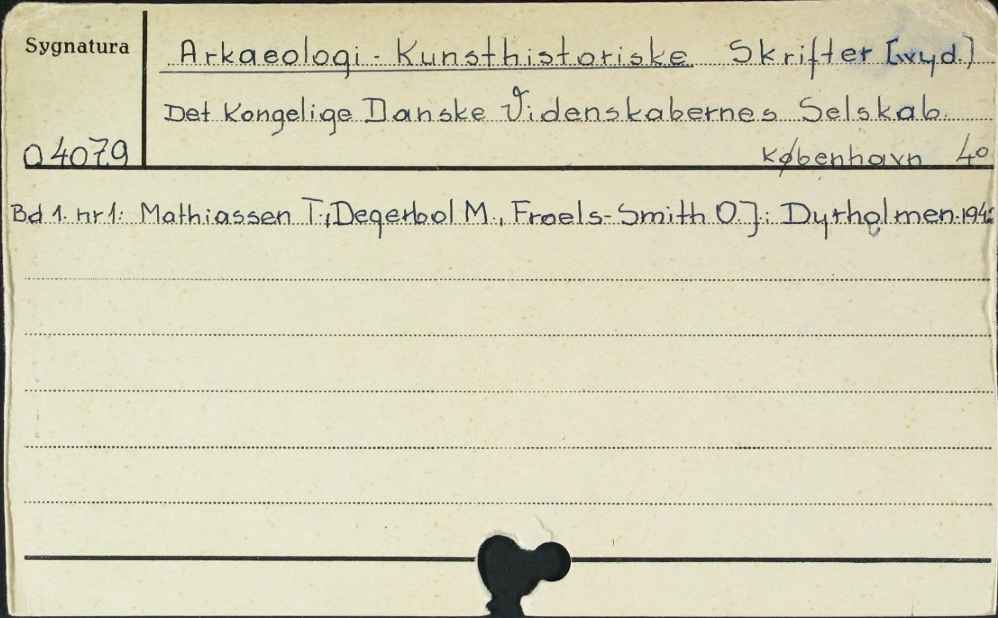 Sygnatura
Arkaeologi - Kunsthistoriske Skrifter [wyd.]
Det Kongelige Danske Videnskabernes Selskab.
04079
København 4o
Bd 1. nr 1: Mathiassen T., Degerbol M., Froels-Smith O.J.: Dyrholmen. 1942